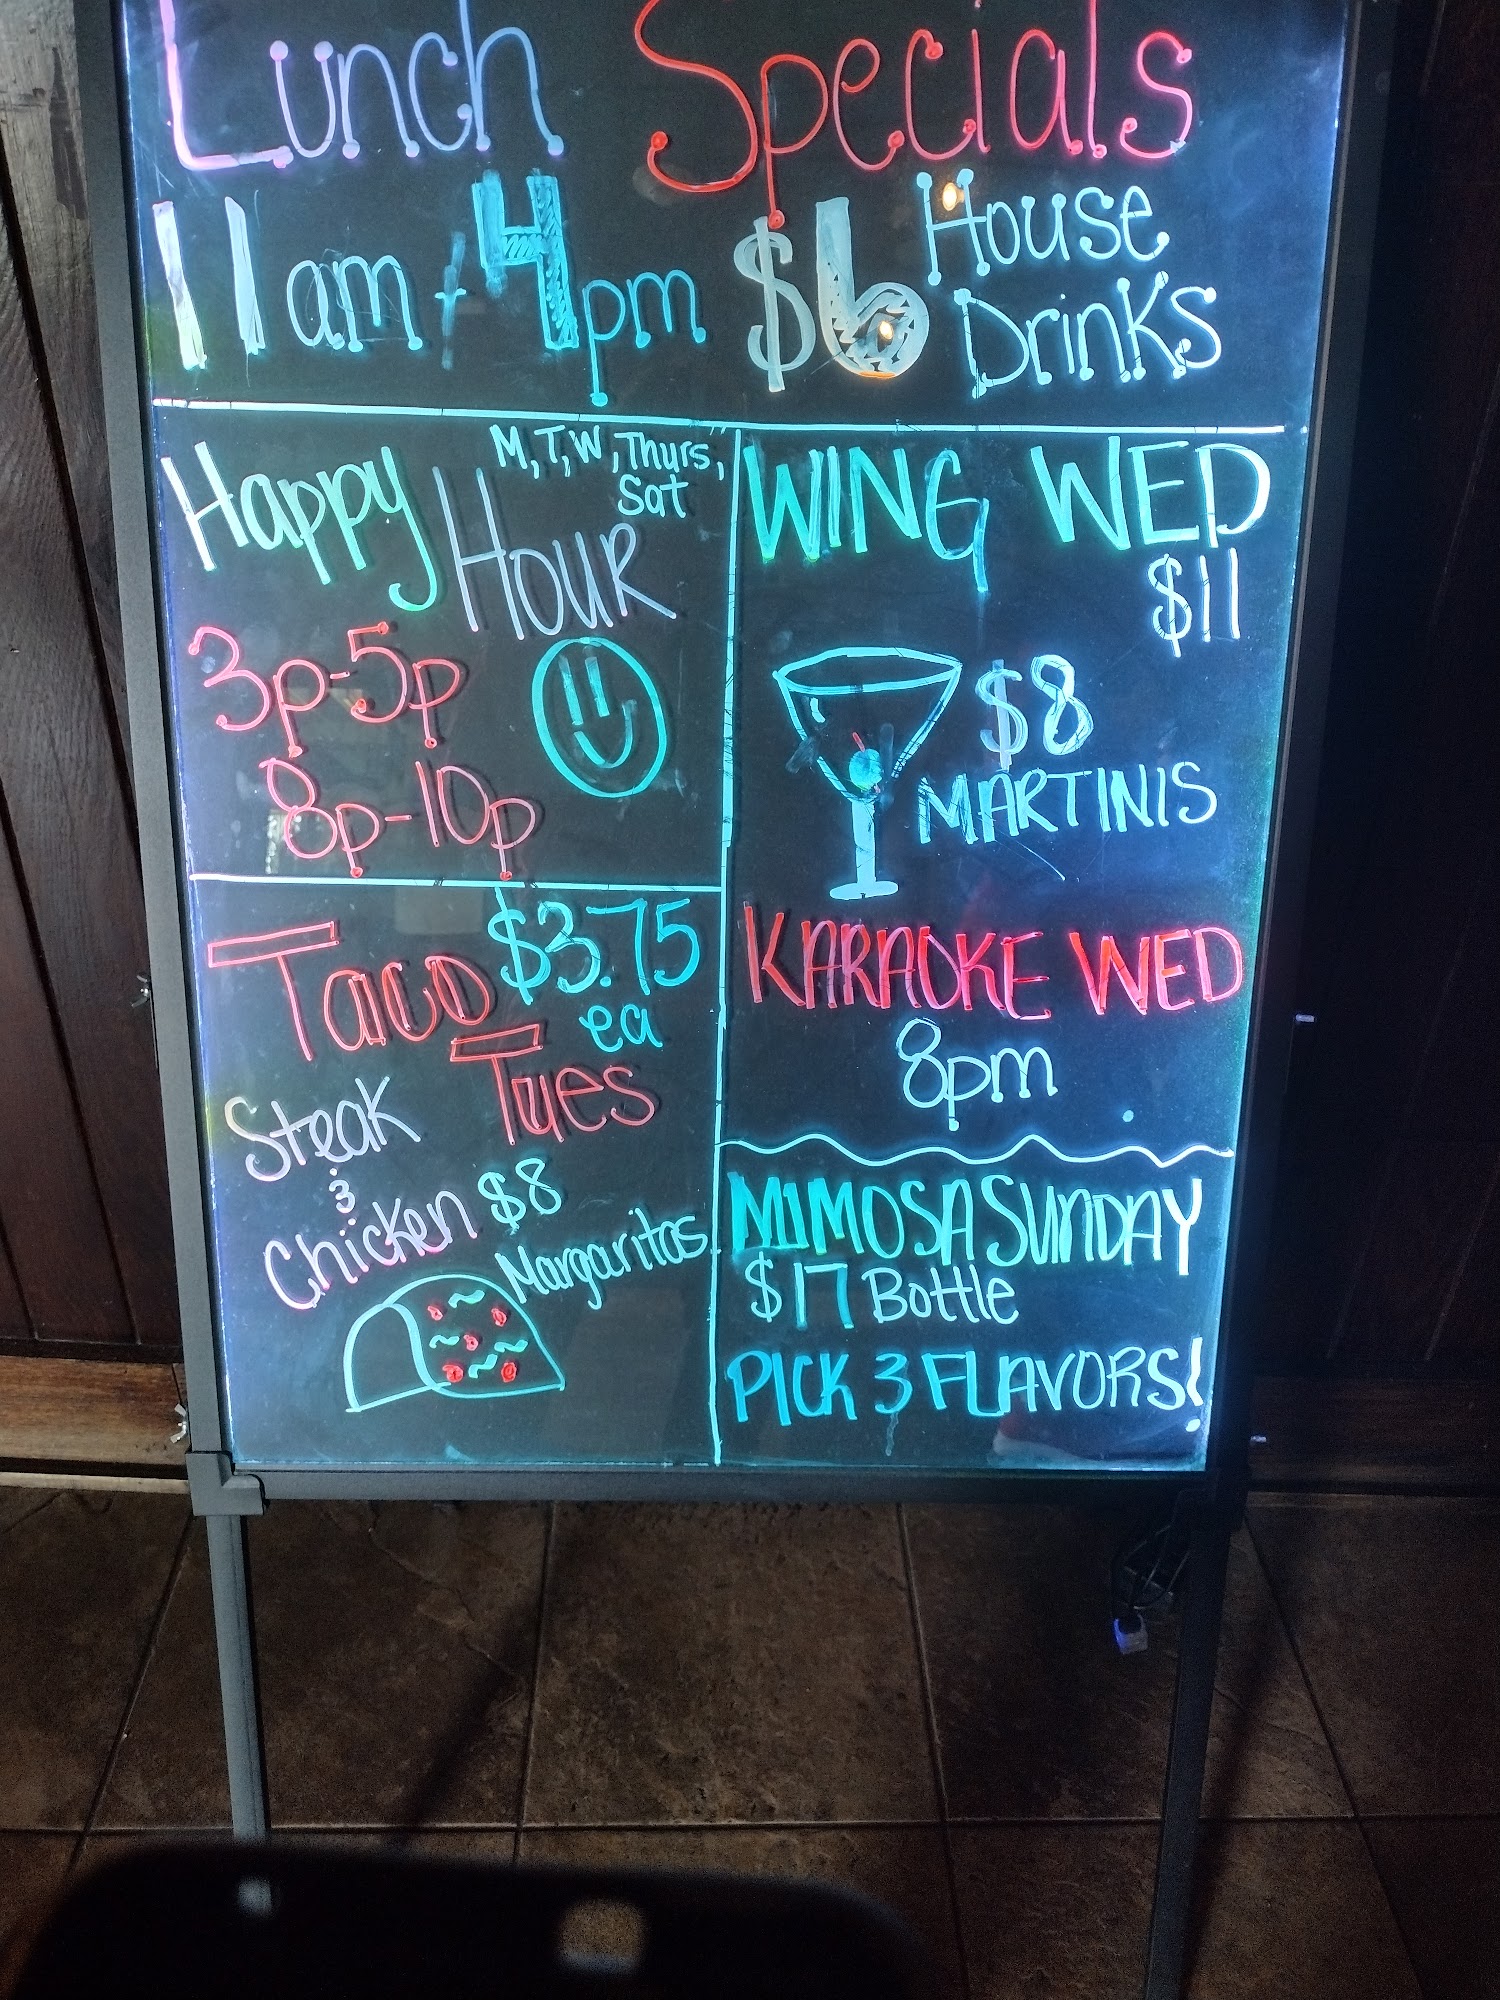 Lunch Specials
11am - 4pm $6 House Drinks
Happy Hour M,T,W,Thurs, Sat
3p-5p
8p-10p
Taco Tues $3.75 ea
Steak
&
Chicken $8 Margaritas
WING WED
$11
$8
MARTINIS
KARAOKE WED
8pm
MIMOSA SUNDAY
$17 Bottle
PICK 3 FLAVORS!